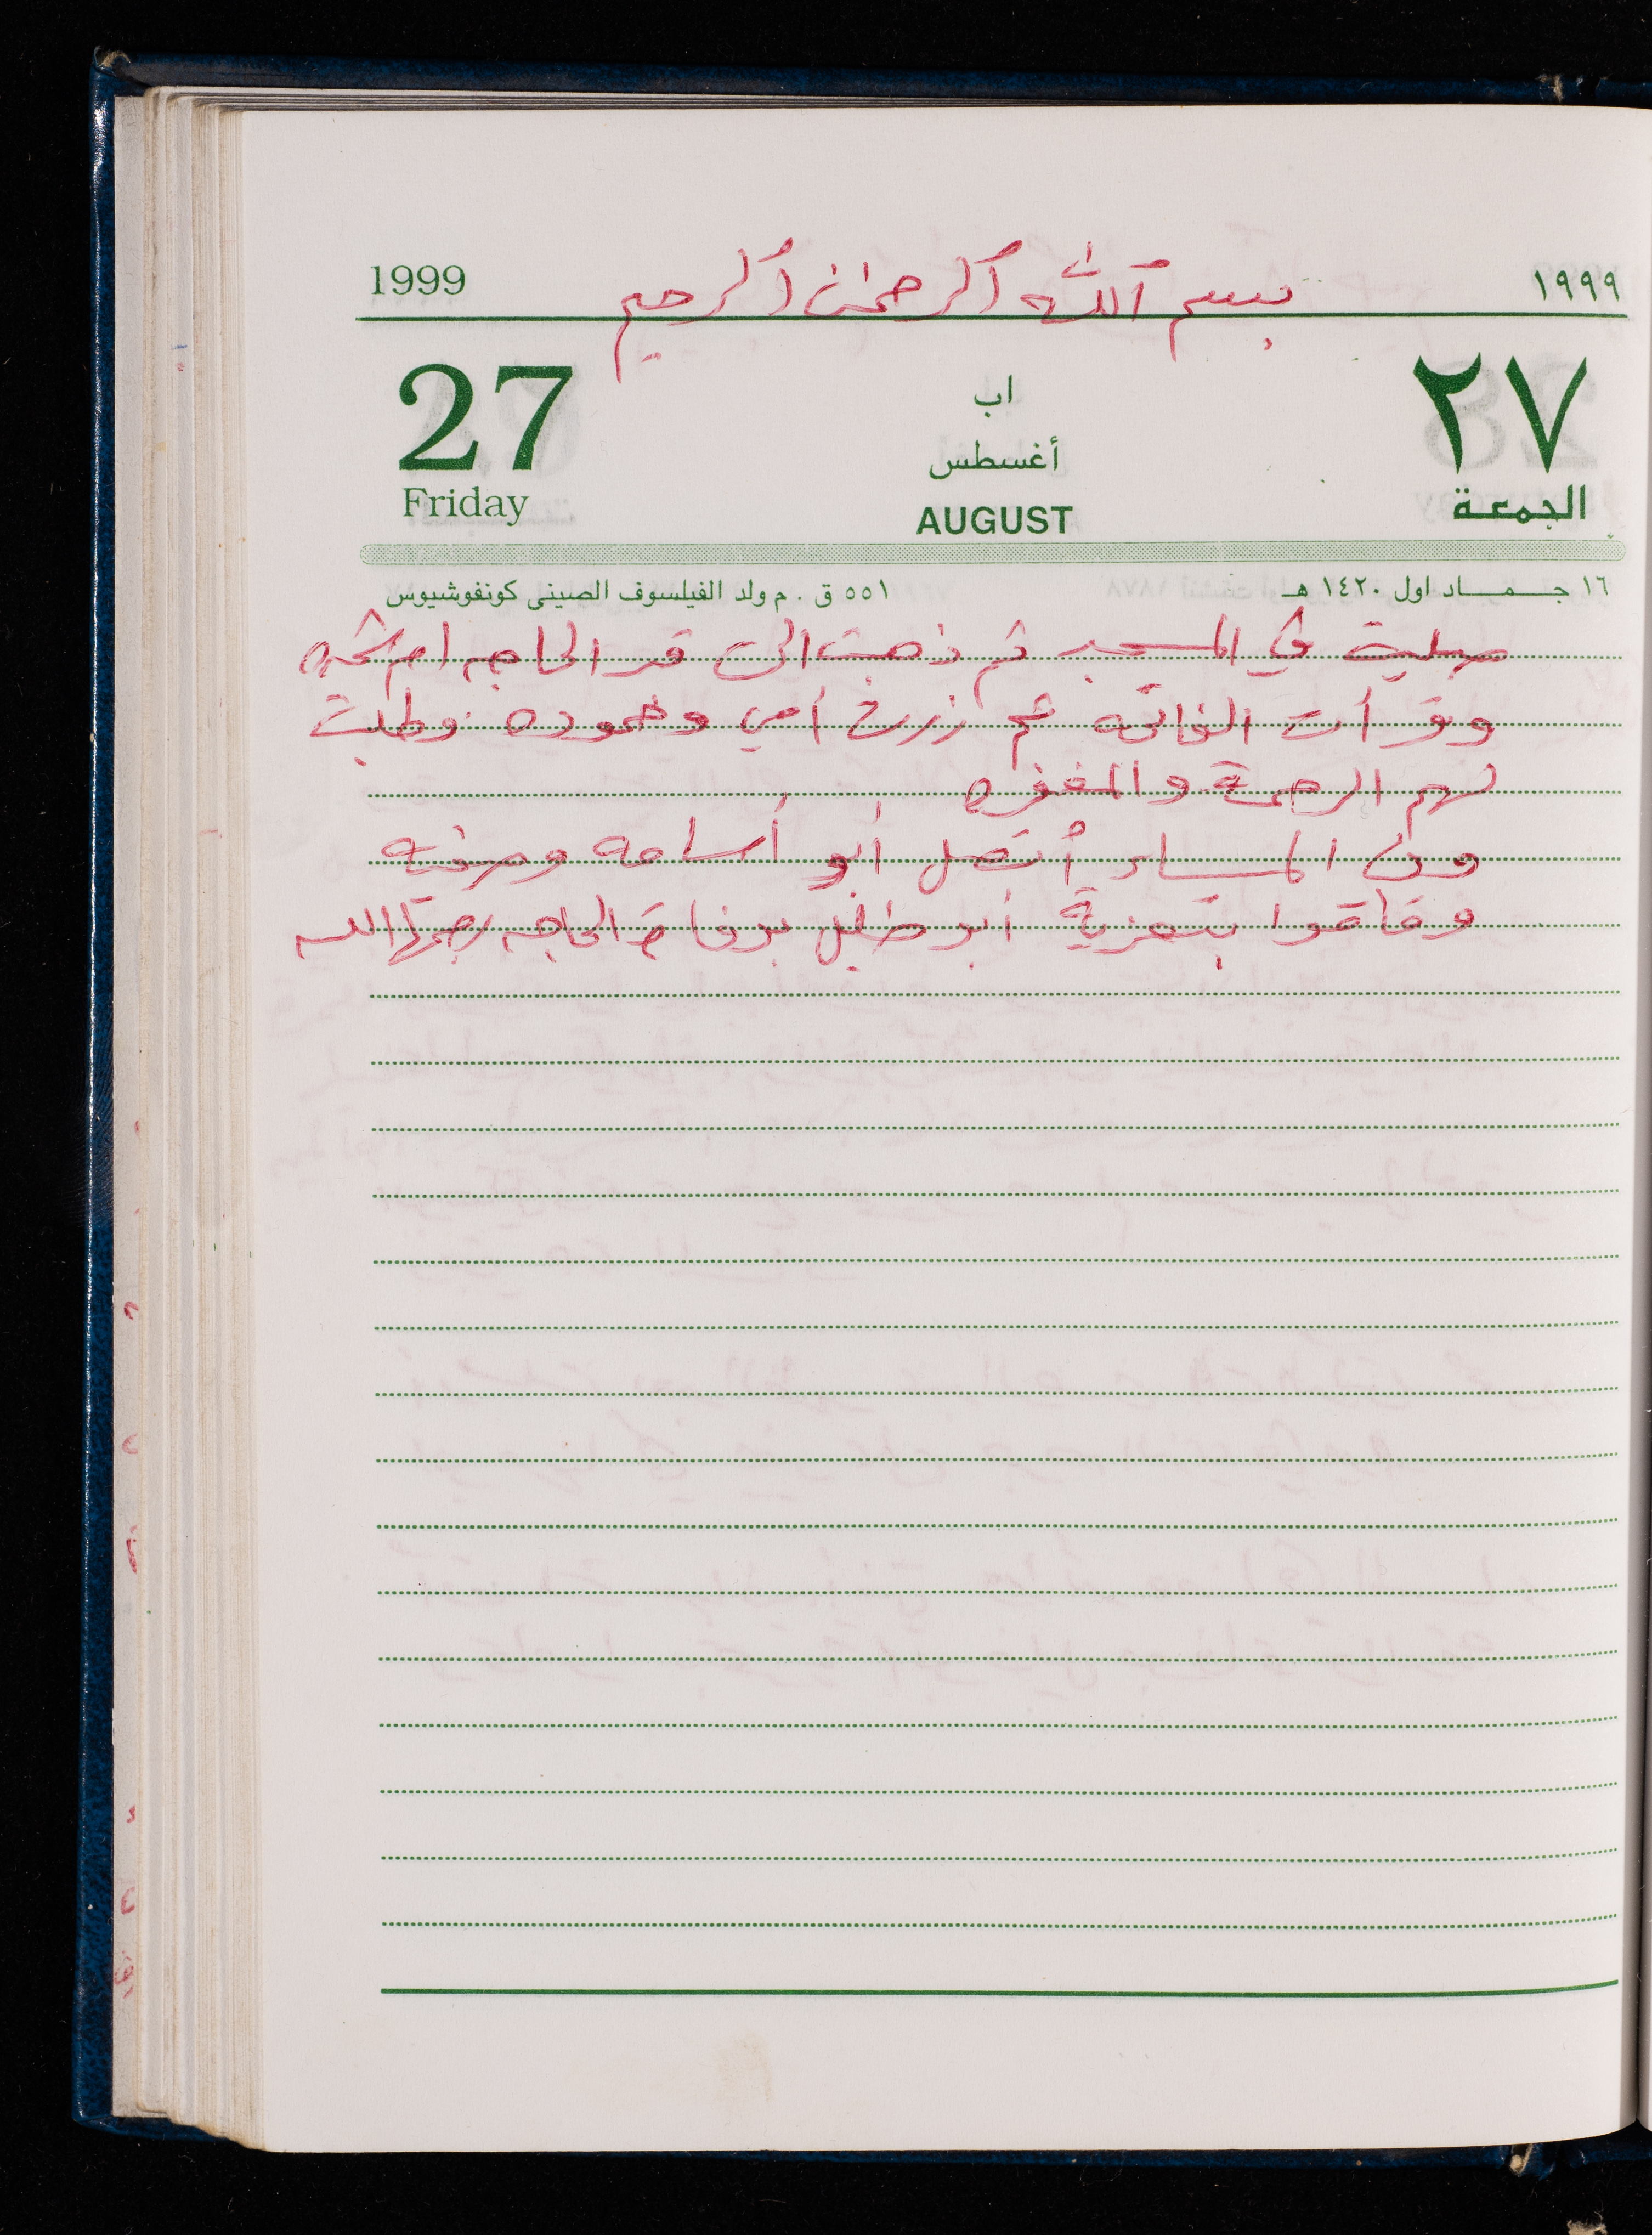 1999 بسم الله الرحمن الرحيم ١٩٩٩
27 اب ٢٧
أغسطس
Friday AUGUST الجمعة
١٦ جمـــاد اول ١٤٢٠ هـ ٥٥١ ق . م ولد الفيلسوف الصينى كونفوشيوس
صليت في المسجد ثم ذهبت الى قبر الحاجه ام
وقرأت الفاتحه ثم زرت أمي وحموده وطلبت
لهم الرحمة والمغفره
وفي المساء أتصل أبو أسامه
بتعزية أبو بوفاة الحاجه رحمها الله